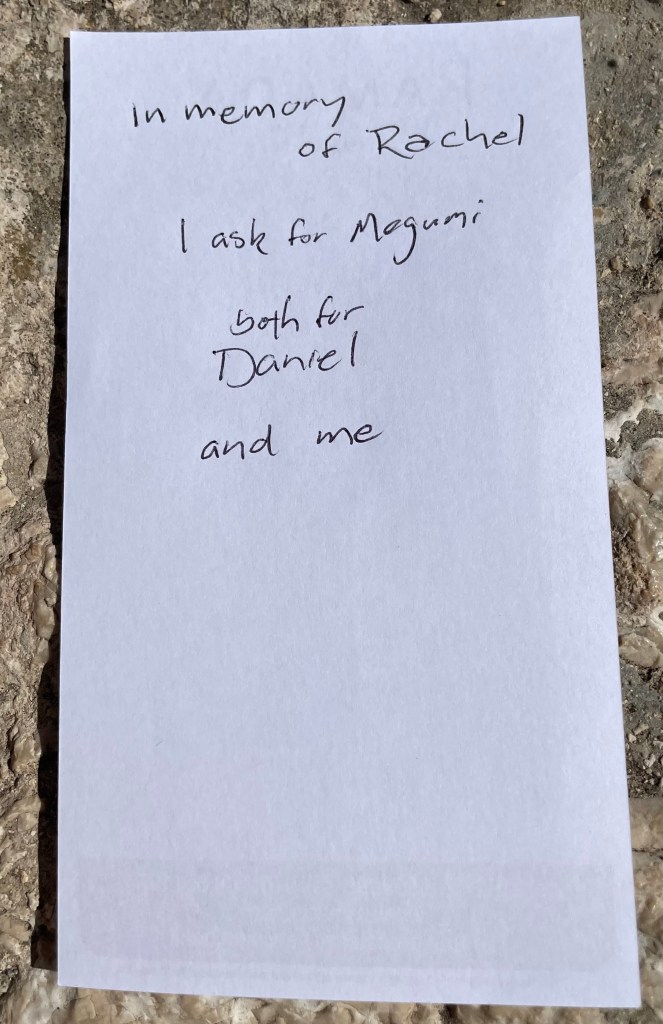 In memory
of Rachel
I ask for Megumi
both for
Daniel
and me